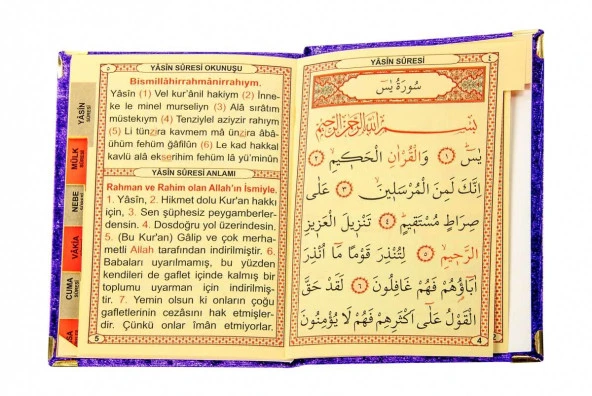 YÂSİN SÛRESİ
سُورَةُ يٰسٓ
بِسْمِ اللّٰهِ الرَّحْمٰنِ الرَّحِيمِ
يٰسٓ ﴿١﴾ وَالْقُرْاٰنِ الْحَكِيمِ ﴿٢﴾
اِنَّكَ لَمِنَ الْمُرْسَلِينَ ﴿٣﴾ عَلٰى
صِرَاطٍ مُسْتَقِيمٍ ﴿٤﴾ تَنْزِيلَ الْعَزِيزِ
الرَّحِيمِ ﴿٥﴾ لِتُنْذِرَ قَوْمًا مَٓا اُنْذِرَ
اٰبَٓاؤُ۬هُمْ فَهُمْ غَافِلُونَ ﴿٦﴾ لَقَدْ حَقَّ
الْقَوْلُ عَلٰٓى اَكْثَرِهِمْ فَهُمْ لَا يُؤْمِنُونَ
4
YÂSİN SÛRESİ OKUNUŞU
Bismillâhirrahmânirrahıym.
Yâsîn (1) Vel kur'ânil hakiym (2) İnne-
ke le minel murseliyn (3) Alâ sırâtım
müstekıym (4) Tenziylel aziyzir rahıym
(5) Li tünzira kavmem mâ ünzira âbâ-
ühüm fehüm ğâfilûn (6) Le kad hakkal
kavlü alâ ekserihim fehüm lâ yü'minûn
YÂSİN SÛRESİ ANLAMI
Rahman ve Rahim olan Allah'ın İsmiyle.
1. Yâsîn, 2. Hikmet dolu Kur'an hakkı
için, 3. Sen şüphesiz peygamberler-
densin. 4. Dosdoğru yol üzerindesin.
5. (Bu Kur'an) Gâlip ve çok merha-
metli Allah tarafından indirilmiştir. 6.
Babaları uyarılmamış, bu yüzden
kendileri de gaflet içinde kalmış bir
toplumu uyarman için indirilmiş-
tir. 7. Yemin olsun ki onların çoğu
gafletlerinin cezâsını hak etmişler-
dir. Çünkü onlar îmân etmiyorlar.
5
YÂSİN
SÛRESİ
MÜLK
SÛRESİ
NEBE
SÛRESİ
VÂKIA
CUMA
SÛRESİ